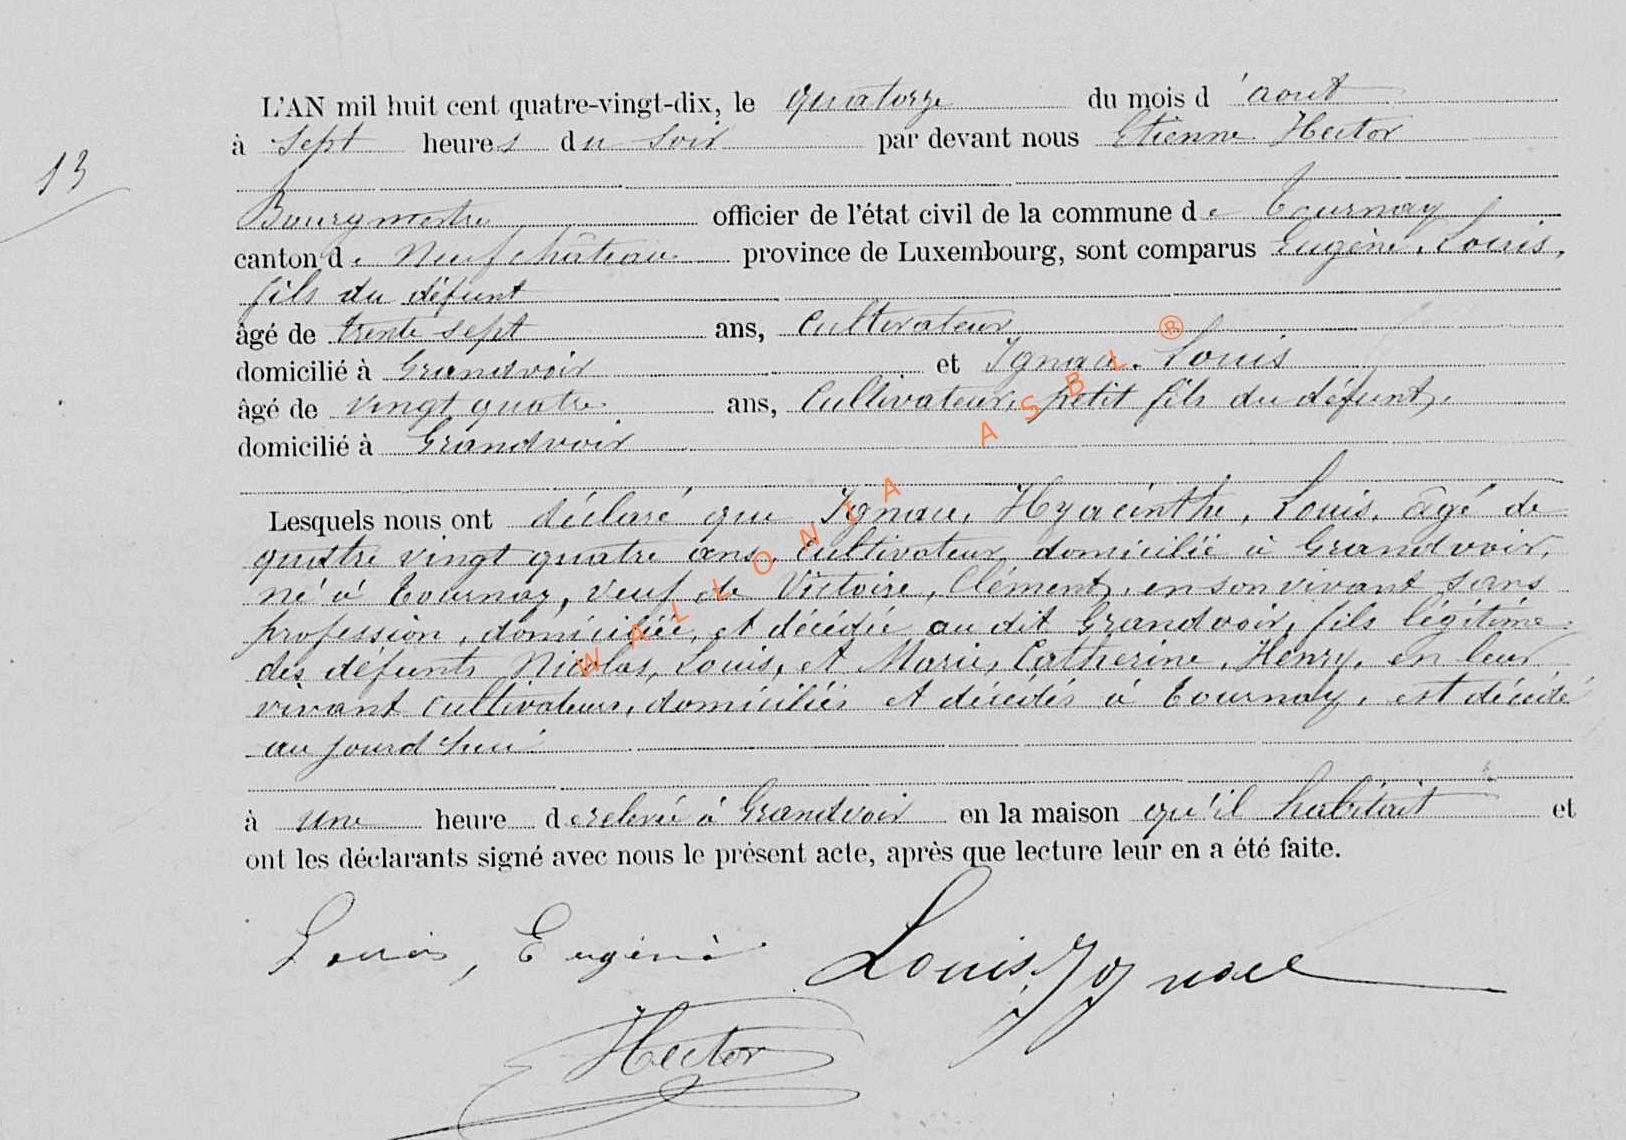 L'AN mil huit cent quatre-vingt-dix, le quatorze du mois d'aout
à sept heures du soir par devant nous Etienne Hector
13
Bourgmestre officier de l'état civil de la commune de Tournay
canton de Neufchâteau province de Luxembourg, sont comparus Eugène, Louis,
fils du défunt
âgé de trente sept ans, Cultivateur
domicilié à Grandvoir et Ignace. Louis
âgé de vingt quatre ans, Cultivateur, petit fils du défunt,
domicilié à Grandvoir
Lesquels nous ont déclaré que Ignace, Hyacinthe, Louis, âgé de
quatre vingt quatre ans, cultivateur domicilié à Grandvoir,
né à Tournay, veuf de Victoire, Clément, en son vivant sans
profession, domiciliée, et décédée au dit Grandvoir, fils légitime
des défunts Nicolas, Louis, et Marie, Catherine, Henry, en leur
vivant cultivateurs, domiciliés et décédés à Tournay, est décédé
aujourd'hui
à une heure de relevée à Grandvoir en la maison qu'il habitait et
ont les déclarants signé avec nous le présent acte, après que lecture leur en a été faite.
Louis, Eugène Louis, Ignace
Hector
WALLONIA ASBL ®